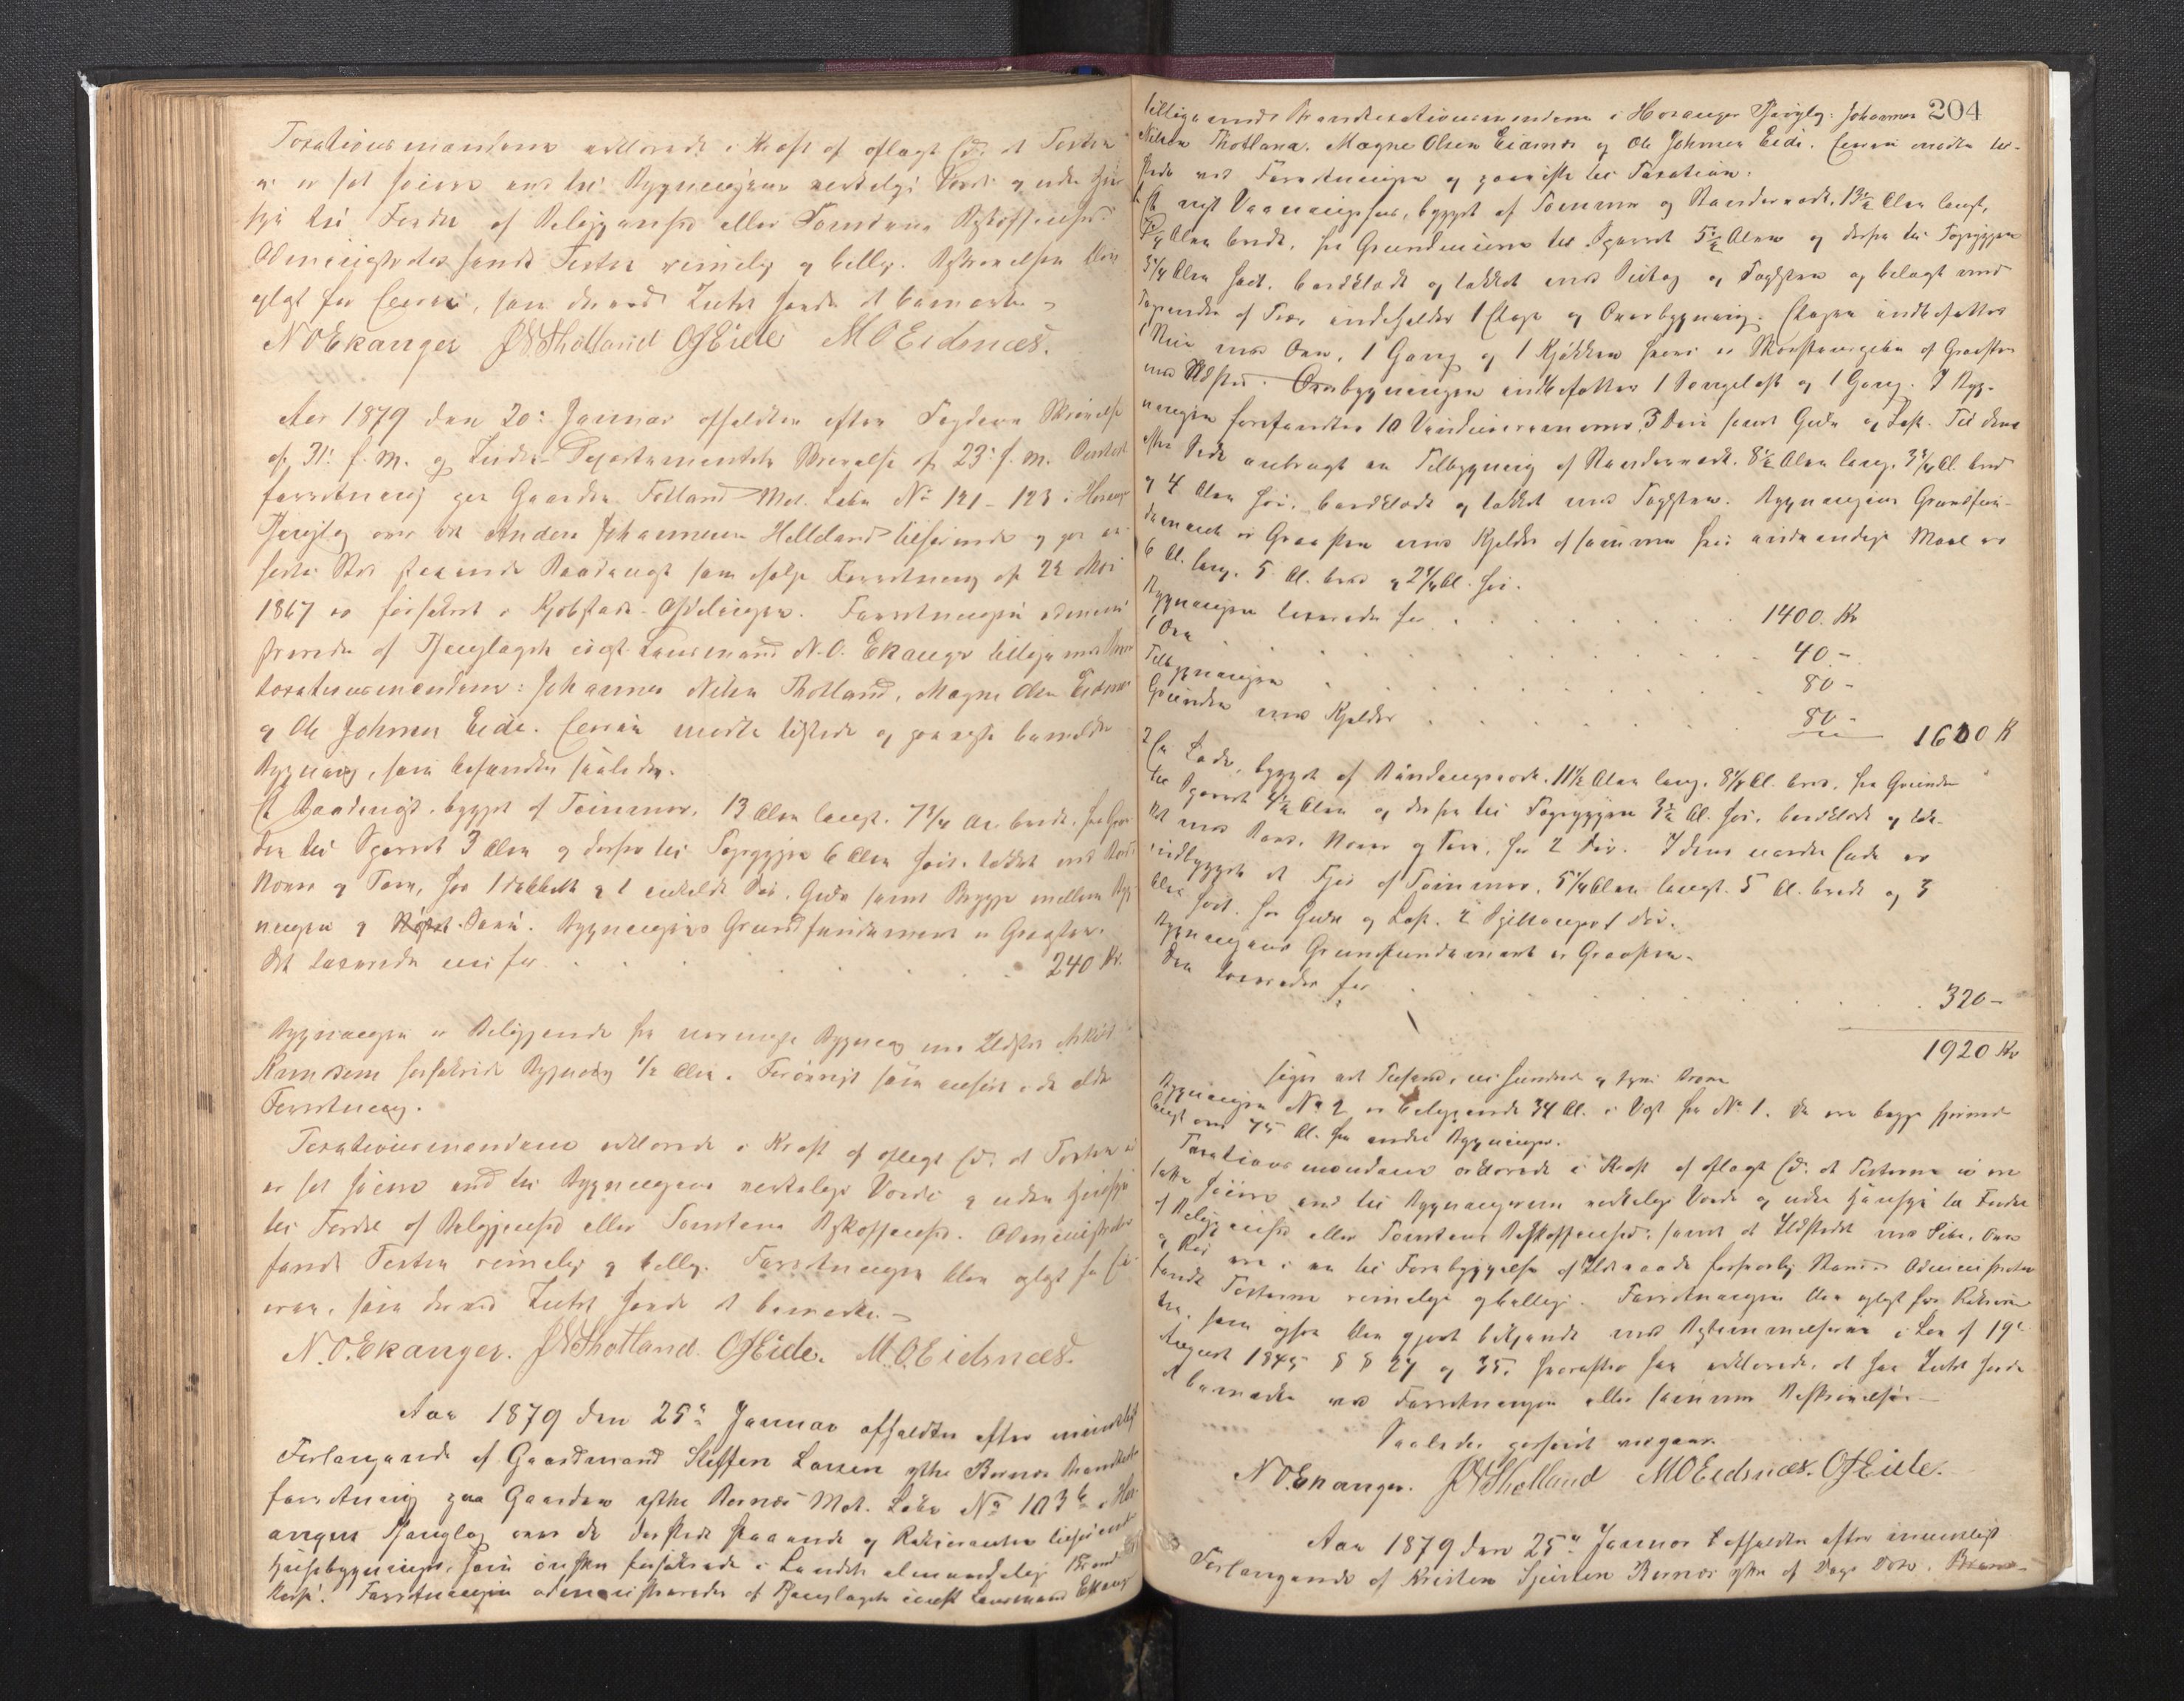 Taxationsmændene erklærede i Kraft af aflagt Ed, at Taxten
ei er sat høiere end til Bygningens virkelige Værdi og uden Hen-
syn til Fordel af Beliggenhed eller Tomtens Beskaffenhed.
Administrator fandt Taxten rimelig og billig. Beskrivelsen blev
oplæst for Eieren, som derved Intet havde at bemærke.
N O Ekanger JNTholland OJEide M O Eidsnæs.
Aar 1879 den 20: Januar afholdtes efter Fogdens Skrivelse
af 31: f. M. og Indre-Departementets Skrivelse af 23: f. M.
forretning paa Gaarden Matr. Løbe No 121-123 i
Thinglag over det Anders Johannesen Helleland tilhørende og paa
staaende Baadnøst som ifølge Forretning af 22 Mai
1867 er forsikret i Kjøbstads-Afdelingen. Forretningen admini-
streredes af Thinglagets const. Lensmand N. O. Ekanger tilligemed
taxationsmændene: Johannes Nilsen Tholland, Magne Olsen Eidsnæs
og Ole Johnsen Eide. Eieren mødte tilstede og paaviste bemeldte
Bygning, som befandtes saaledes.
Et Baadnøst, bygget af Tømmer, 13 Alen langt, 7 3/4 Al. bredt, fra Grun-
den til Sparret 3 Alen og derfra til Tagryggen 6 Alen høit, tækket med
Næver og Torv, har 1 dobbelt og 1 enkelt Dør,
Bygningens Grundfundament er Graasten.
Det taxeredes nu for 240 Kr.
Bygningen er Beliggende fra nærmeste Bygning med Ildsted
forsikrede Bygning 1/2 Alen. Forøvrigt som anført i de ældre
Forretning.
Taxationsmændene erklærede i Kraft af aflagt Ed, at Taxten ei
er sat høiere end til Bygningens virkelige Værdi og uden Hensyn
til Fordel af Beliggenhed eller Tomtens Beskaffenhed. Administrator
fandt Taxten rimelig og billig. Forretningen blev oplæst for Ei-
eren, som derved Intet havde at bemærke.
N. O. Ekanger. JNTholland. OJEide. M. O. Eidsnæs.
Aar 1879 den 25: Januar afholdtes efter mundtligt
Forlangende af Gaardmand Steffen Larsen ythre Bernæs Brandtaxt
forretning paa Gaarden ythre Bernæs Matr. Løbe No 103 b i Hos-
anger Thinglag over de dersteds staaende og Rekvirenten tilhørende
Huusbygninger, som ønskes forsikrede i Landets almindelige Brand-
kasse. Forretningen administreredes af Thinglagets const. Lensmand Ekanger
204
tilligemed Brandtaxationsmændene i Hosanger Thinglag: Johannes
Nilsen Tholland, Magne Olsen Eidsnæs og Ole Johnsen Eide. Eieren mødte til-
stede ved Forretningen og paaviste til Taxation:
1 Et nyt Vaaningshus, bygget af Tømmer og Standerværk, 13 1/2 Alen langt,
Alen bredt, fra Grundmuren til Sparret 5 1/2 Alen og derfra til Tagryggen
3 1/4 Alen høit, bordklædt og tækket med Tagsten og belagt med
indeholder 1 Etage og Overbygning. Etagen indbefatter
med Ovn, 1 Gang og 1 Kjøkken hvori er Skorstenspibe af Graasten
med Ildsted. Overbygningen indbefatter 1 Sengeloft og 1 Gang. I Byg-
ningen forefandtes 10 Vinduesrammer, 3 Døre samt Gulv og Loft. Til den
østre Side anbragt en Tilbygning af Standerværk, 8 1/2 Alen lang, 3 3/4 Al. bred
og 4 Alen høi, bordklædt og tækket med Tagsten. Bygningens Grundfun-
dament er Graasten med Kjelder af samme hvis indvendige Maal er
6 Al. lang, 5 Al. bred og 2 3/4 Al. høi.
Bygningen taxeredes for 1400 Kr
1 Ovn 40 -
Tilbygningen 80 -
Grunden med Kjelder 80 - 1600 K
2 En Lade, bygget af Bindingsværk, 11 1/2 Alen lang, 8 1/4 Al. bred, fra Grunden
til Sparret 4 1/2 Alen og derfra til Tagryggen 3 1/2 Al. høi, bordklædt og tæk-
ket med Bord, Næver og Torv, har 2 Dør. I dens nordre Ende er
indbygget et Fjøs af Tømmer, 5 1/4 Alen langt, 5 Al. bredt og 3
Alen høit, har Gulv og Loft, 2 og 1 Dør.
Bygningens Grundfundament er Graasten.
Den taxeredes for 320 -
1920 Kr
siger et Tusend, ni hundrede og tyve Kroner
Bygningen No 2 er beliggende 34 Al. i Vest fra No 1. De ere begge
længst end 75 Al. fra andre Bygninger.
Taxationsmændene erklærede i Kraft af aflagt Ed, at Taxterne ei ere
satte høiere end til Bygningernes virkelige Værdi og uden Hensyn til Fordel
af Beliggenhed eller Tomtens Beskaffenhed, samt at Ildstedet med Pibe, Ovn
og Rør ere i en til Forebyggelse af Ildsvaade forsvarlig Stand. Administrator
fandt Taxterne rimelige og billige. Forretningen blev oplæst for Rekviren-
ten, som ogsaa blev gjort bekjendt med Bestemmelserne i Lov af 19de
August 1845 §§ 27 og 35, hvorefter han erklærede, at han Intet havde
at bemærke ved Forretningen eller samme Beskrivelse.
Saaledes passeret vidner
N O Ekanger. JNTholland M O Eidsnæs. OJEide.
Aar 1879 den 25: Januar afholdtes efter mundtligt
Forlangende af Kristen Bernæs ythre